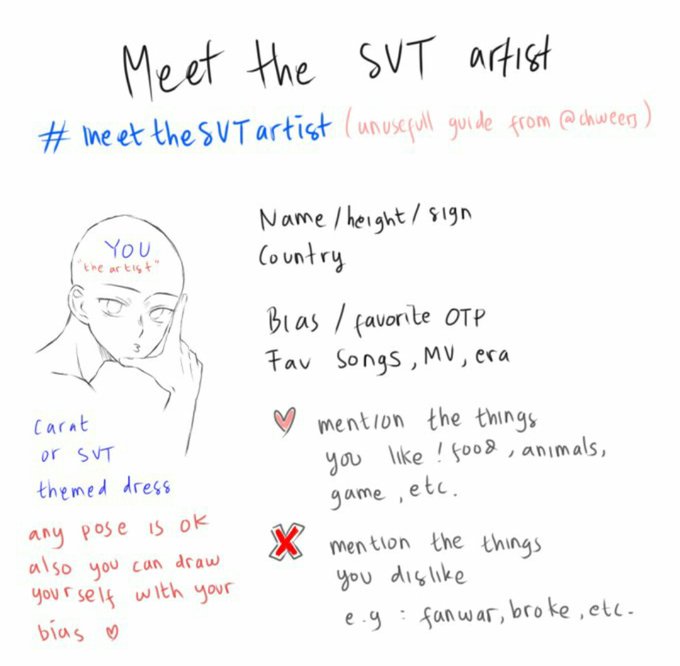 Meet the SVT artist
#meettheSVTartist (unusefull guide from @chweers)
YOU
"the artist"
Name / height / sign
Country
Bias / favorite OTP
Fav songs, MV, era
carat
or SVT
themed dress
any pose is ok
also you can draw
yourself with your
bias
mention the things
you like ! food, animals,
game, etc.
mention the things
you dislike
e.g : fanwar, broke, etc.